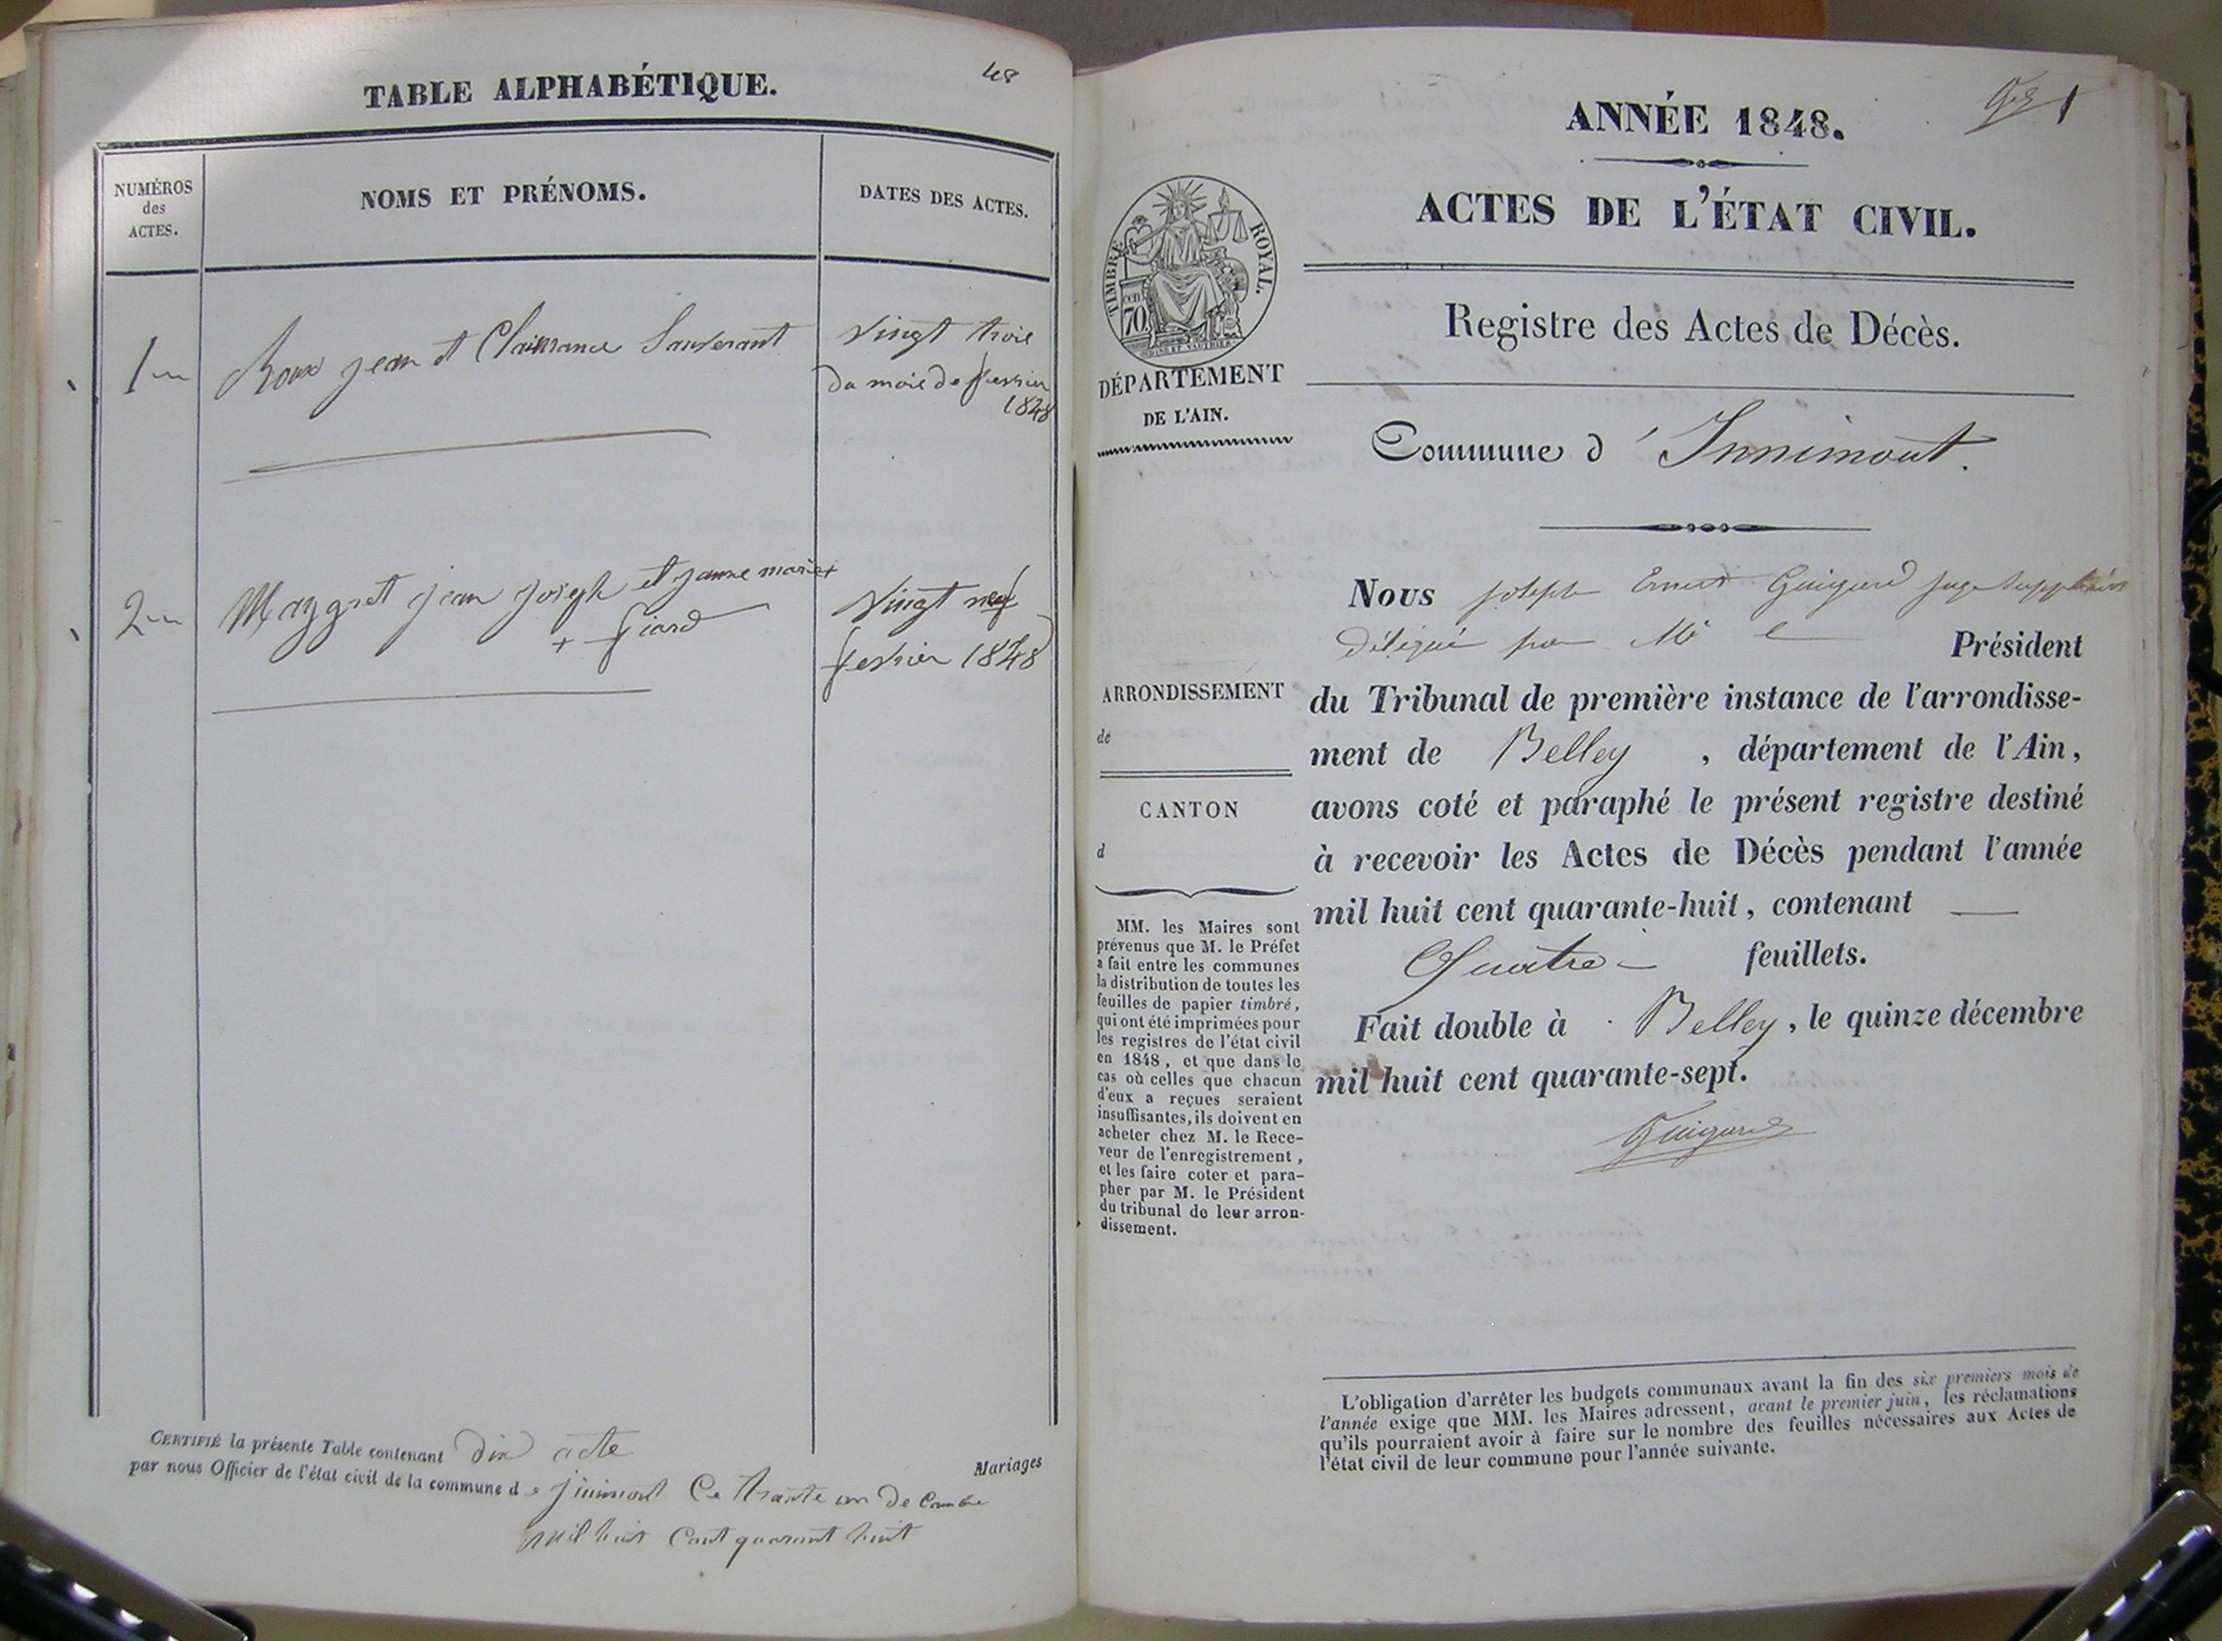 TABLE ALPHABÉTIQUE.
48
NUMÉROS
des
ACTES.
NOMS ET PRÉNOMS.
DATES DES ACTES.
1
Roux jean et Clairance
Vingt trois
du mois de fevrier
1848
2
jean joseph et janne marie +
+ fiard
Vingt neuf
fevrier 1848
CERTIFIÉ la présente Table contenant dix acte
par nous Officier de l'état civil de la commune d
Ce trante un de
Mariages
mil huit Cent quarant huit
ANNÉE 1848.
1
ACTES DE L'ÉTAT CIVIL.
TIMBRE ROYAL.
cen.
70
Registre des Actes de Décès.
DÉPARTEMENT
DE L'AIN.
Commune d'Innimont.
Nous joseph Ernest Guigard juge suppléant
délégué par Mr le Président
ARRONDISSEMENT
de
du Tribunal de première instance de l'arrondisse-
ment de Belley, département de l'Ain,
CANTON
d
avons coté et paraphé le présent registre destiné
à recevoir les Actes de Décès pendant l'année
mil huit cent quarante-huit, contenant
Quatre feuillets.
Fait double à Belley, le quinze décembre
mil huit cent quarante-sept.
Guigard
MM. les Maires sont
prévenus que M. le Préfet
a fait entre les communes
la distribution de toutes les
feuilles de papier timbré,
qui ont été imprimées pour
les registres de l'état civil
en 1848, et que dans le
cas où celles que chacun
d'eux a reçues seraient
insuffisantes, ils doivent en
acheter chez M. le Rece-
veur de l'enregistrement,
et les faire coter et para-
pher par M. le Président
du tribunal de leur arron-
dissement.
L'obligation d'arrêter les budgets communaux avant la fin des six premiers mois de
l'année exige que MM. les Maires adressent, avant le premier juin, les réclamations
qu'ils pourraient avoir à faire sur le nombre des feuilles nécessaires aux Actes de
l'état civil de leur commune pour l'année suivante.